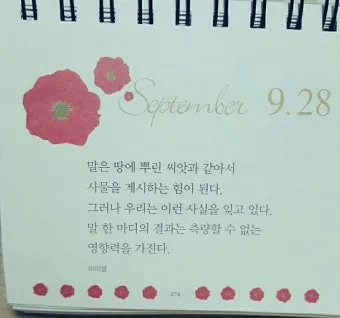 September 9.28
말은 땅에 뿌린 씨앗과 같아서
사물을 계시하는 힘이 된다.
그러나 우리는 이런 사실을 잊고 있다.
말 한 마디의 결과는 측량할 수 없는
영향력을 가진다.
아미엘